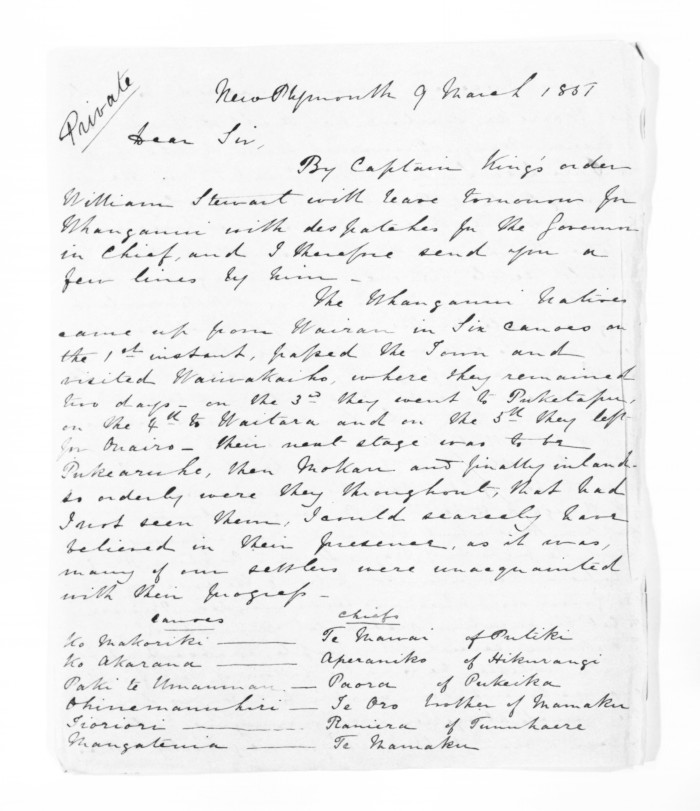 Private
New Plymouth 9 March 1851
Dear Sir,
By Captain King's order
William Stewart will leave tomorrow for
Whanganui with despatches for the Governor
in Chief, and I therefore send you a
few lines by him -
The Whanganui Natives
came up from Wairau in Six canoes on
the 1st instant, passed the Town and
visited Waiwakaiho, where they remained
two days - on the 3rd they went to Puketapu,
on the 4th to Waitara and on the 5th they left
for Onairo - their next stage was to be
Pukearuhe, then Mokau and finally inland -
so orderly were they throughout, that had
I not seen them, I could scarcely have
believed in their presence, as it was,
many of our settlers were unacquainted
with their progress -
Canoes Chiefs
Ko Makoriki — Te Mawai of Putiki
Ko Akarana — Aperaniko of Hikurangi
Paki te — Paora of Pukeika
Ohinemanuhiri — Te Oro brother of Mamaku
Tioriori — Raniera of Tunuhaere
Mangatenia — Te Mamaku